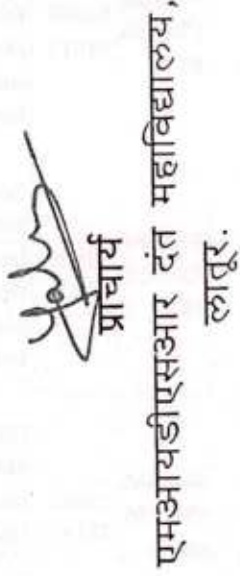 प्राचार्य
ऐमआयडीऐसआर दंत महाविद्यालय,
लातूर.